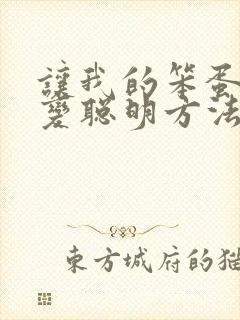 讓我的笨蛋
變聰明方法
東方城府的猫